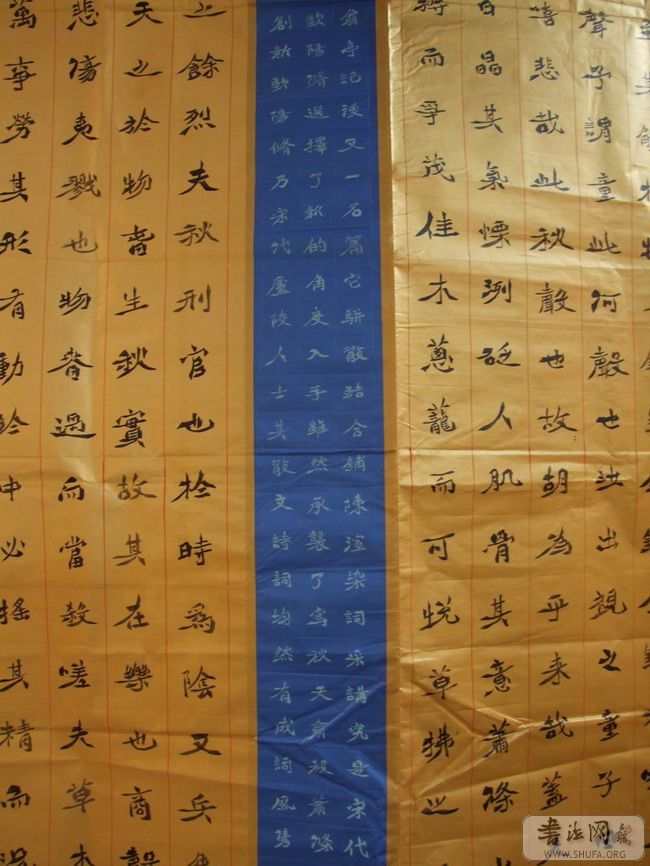 聲予謂童此何聲也汝出視之童子
嘻悲哉此秋聲也故胡為乎来哉蓋
日晶其氣慄冽砭人肌骨其意蕭條
縟而爭茂佳木蔥蘢而可悅草拂之
翁亭記後又一名篇它駢散結合鋪陳渲染詞采講究是宋代
歐陽脩選擇了新的角度入手雖然承襲了寫秋天肅殺蕭條
創新歐陽脩乃宋代廬陵人士其散文詩詞均然有成詞風雋
之餘烈夫秋刑官也於時爲陰又兵
天之於物春生秋實故其在樂也商聲
悲傷夷戮也物過而當殺嗟夫草木
萬事勞其形有動於中必搖其精而況
書法网
WWW.SHUFA.ORG